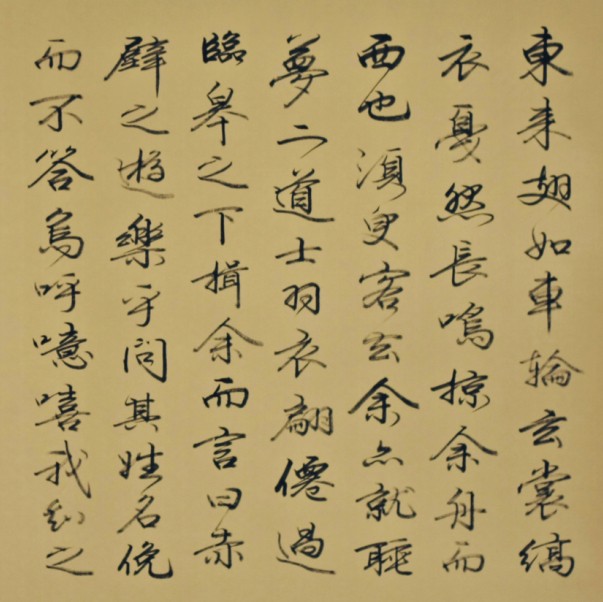 東来翅如車輪玄裳縞
衣戛然長鳴掠余舟而
西也須臾客去余亦就睡
夢二道士羽衣翩僊過
臨皋之下揖余而言曰赤
壁之遊樂乎問其姓名俛
而不答烏呼噫嘻我知之